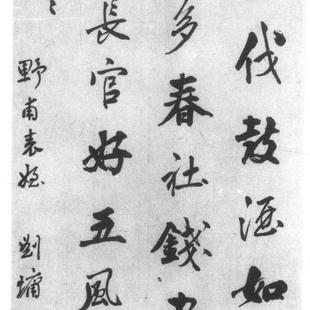 伐鼓酒如
多春社錢
長官好五風
野南表姪 劉墉